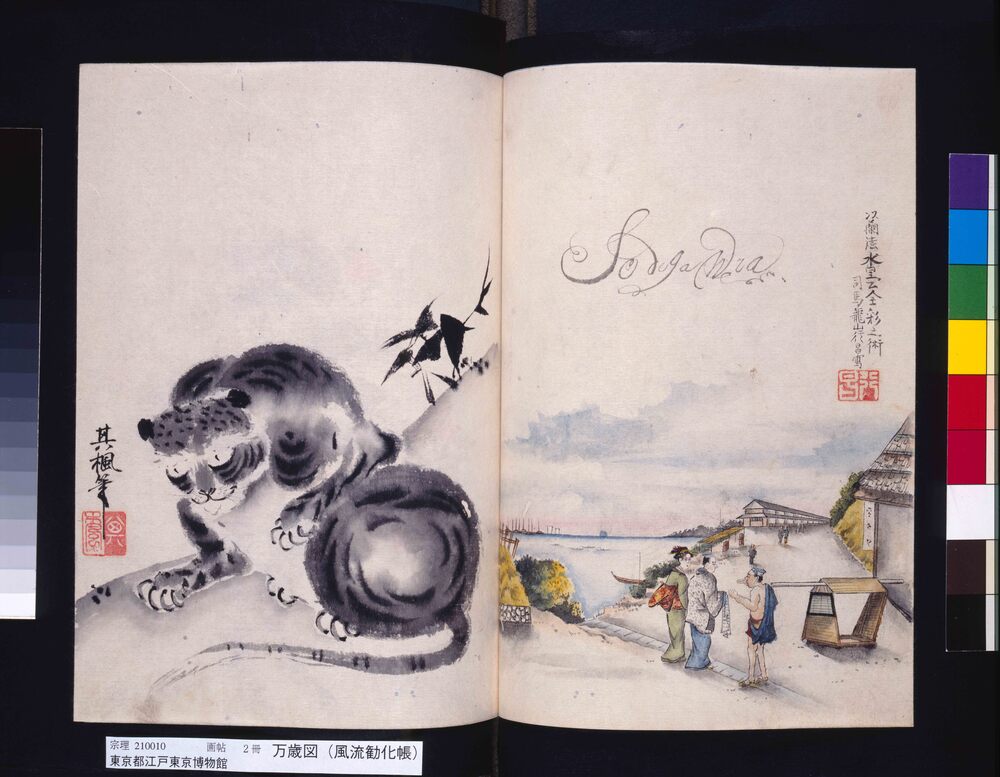 其楓筆
Sodega Wra
以蘭法水画全彩之術
司馬龍山行昌寫
宗理 210010 画帖 2冊 万歳図（風流勧化帳）
東京都江戸東京博物館